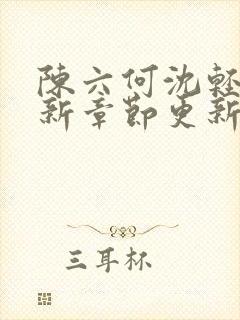 陳六何沈輕
新章節更新
三耳杯